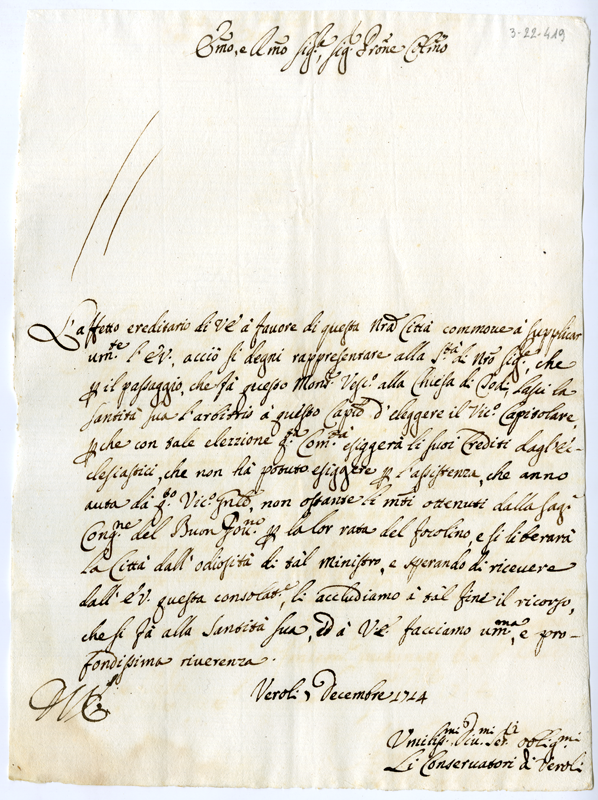 3-22-419
Emo, e Rmo Sig.re, Sig. Prone Colmo
L'affetto ereditario di V.E. à favore di questa Nra Città commove à supplicar
um.te l'E.V., acciò si degni rappresentare alla S.tà di Nro Sig.re, che
p il passaggio, che fà questo Mons.r Vesc.o alla Chiesa di Todi, lasci la
Santità Sua l'arbitrio à questo Capit.o d'eleggere il Vic.o Capitolare,
p che con tale elezzione q.a Com.tà esiggerà li suoi Crediti dagl'Ec-
clesiastici, che non hà potuto esiggere p l'assistenza, che anno
auta dà q.sto Vic.o Gnle, non ostante li mti ottenuti dalla Sag.
Cong.ne del Buon Gou.no p la lor rata del focolino, e si liberarà
la Città dall'odiosità di tàl ministro, e sperando di ricevere
dall'E.V. questa consolat.e, li accludiamo à tàl fine il ricorso,
che si fà alla Santità Sua, ed à V.E. facciamo um.ma, e pro-
fondissima riverenza.
Veroli Decembre 1714
D.V.E.
Umiliss.mi Diu.mi Ser.ri oblig.mi
Li Conservatori di Veroli